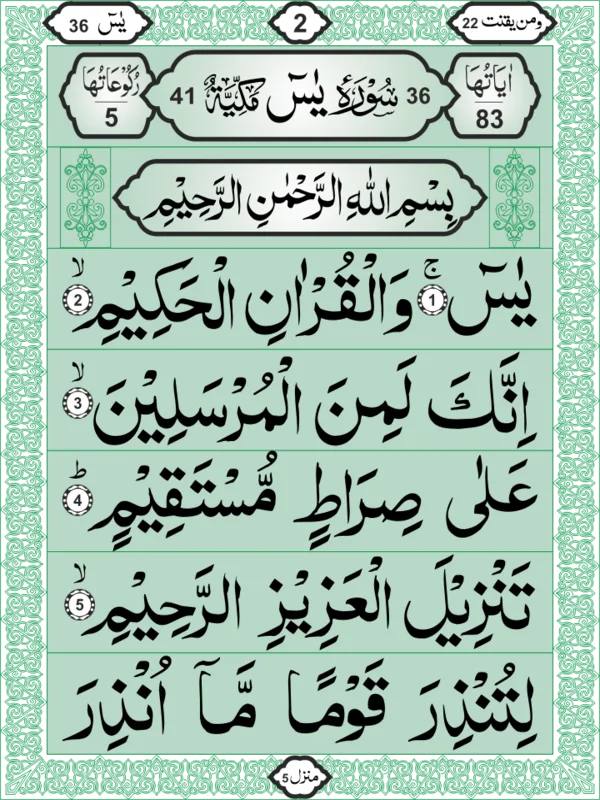 ومن یقنت 22
2
یٰسٓ 36
اٰیَاتُهَا 83
36 سُوْرَةُ یٰسٓ مَكِّیَّةٌ 41
رُكُوْعَاتُهَا 5
بِسْمِ اللّٰهِ الرَّحْمٰنِ الرَّحِیْمِ
یٰسٓ ۚ 1 وَالْقُرْاٰنِ الْحَكِیْمِ ۙ 2
اِنَّكَ لَمِنَ الْمُرْسَلِیْنَ ۙ 3
عَلٰی صِرَاطٍ مُّسْتَقِیْمٍ ؕ 4
تَنْزِیْلَ الْعَزِیْزِ الرَّحِیْمِ ۙ 5
لِتُنْذِرَ قَوْمًا مَّاۤ اُنْذِرَ
منزل 5